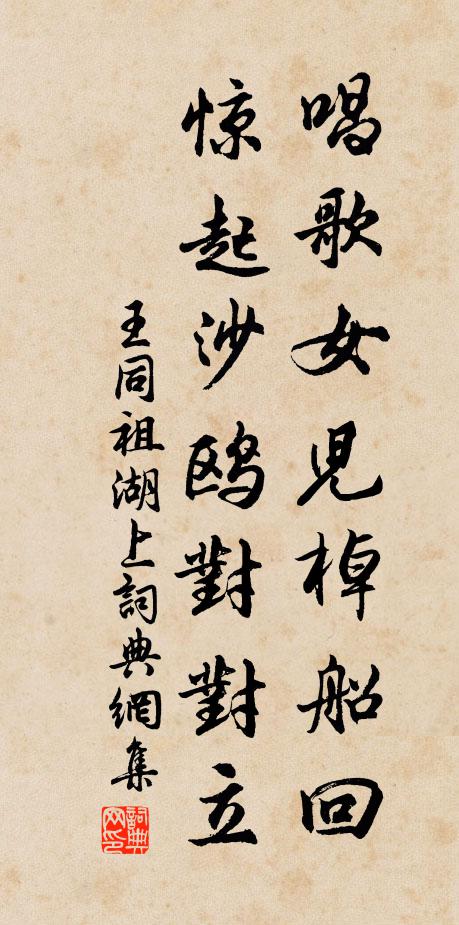 唱歌女兒棹船回
惊起沙鸥對對立
王同祖湖上詞典網集
詞典网印